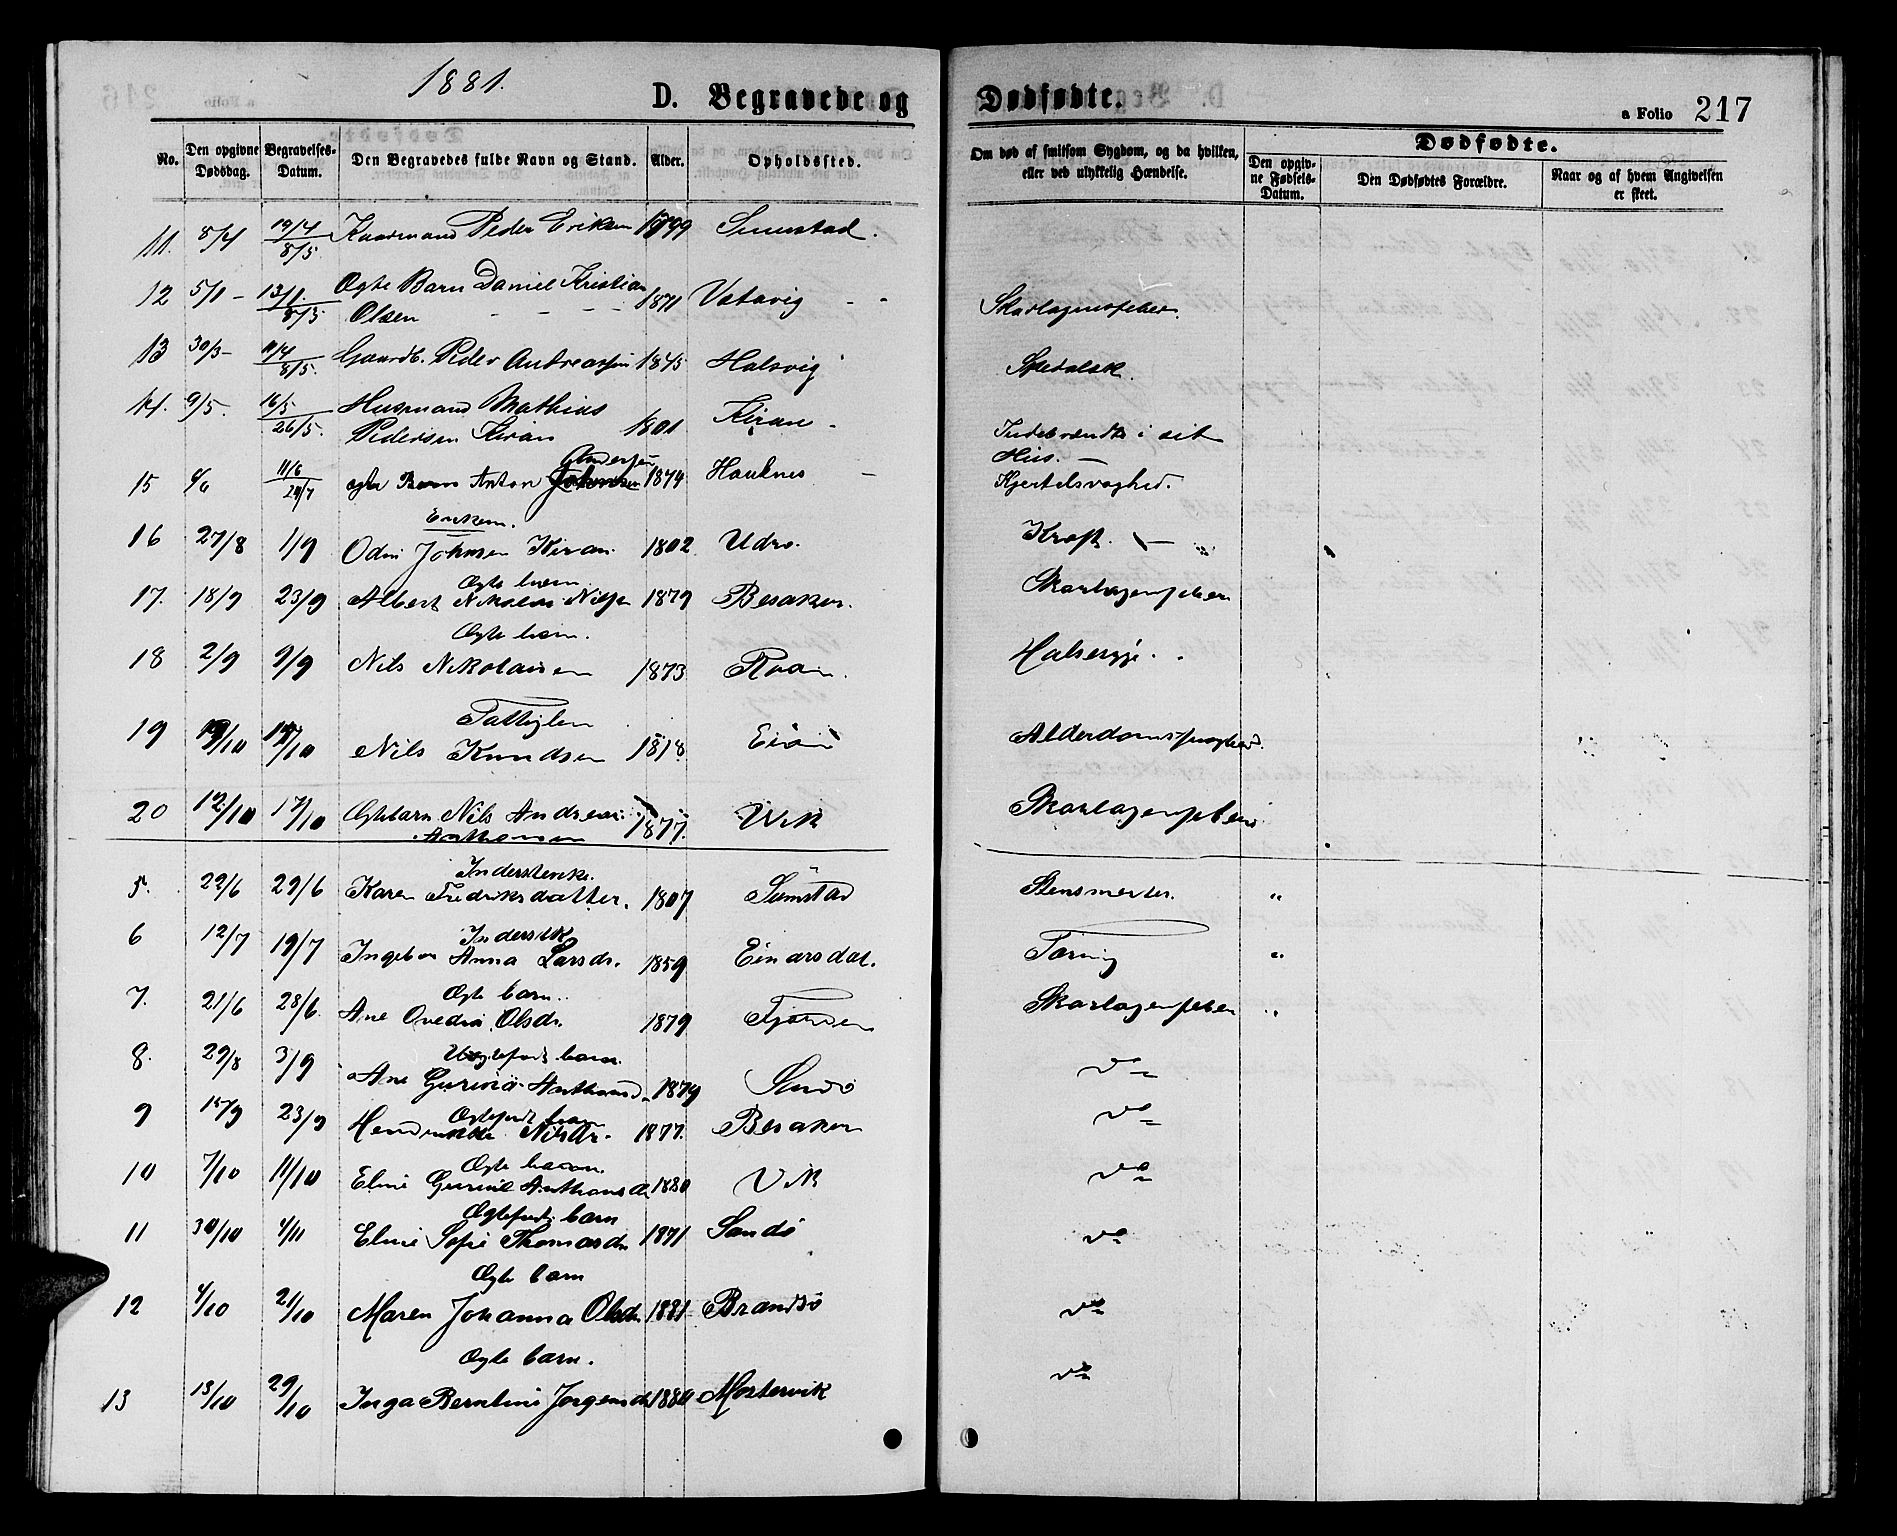 1881.
D. Begravede og Dødfødte.
a Folio 217
No.
Den opgivne Dødsdag.
Begravelses-Datum.
Den Begravedes fulde Navn og Stand.
Alder.
Opholdssted.
Om død af smitsom Sygdom, og da hvilken, eller ved ulykkelig Hændelse.
Dødfødte.
Den opgivne Fødsels-Datum.
Den Dødfødtes Forældre.
Naar og af hvem Angivelsen er skeet.
11. 8/4 19/4 8/5 Kaarmand Peder Eriksen 1799 Sumstad.
12 5/1 - 13/1 8/5 Ægte Barn Daniel Kristian Olsen - - - - 1871 Vatavig - - Skarlagensfeber.
13 30/3- 11/4 8/5. Gaardb. Peder Andreassen 1845 Halsvig Spedalsk.
14. 9/5. 16/5 26/5. Husmand Mathias Pedersen Kiran 1801 Kiran - Indebrændte i sit Hus. -
15 6/6 11/6 24/7 ægte Barn Anton Johnsen Andersen 1874 Hauknes - Kjertelsvaghed.
16 27/8 1/9 Enkem. Odin Johnsen Kiran. 1802 Udro. Kræft. -
17. 18/9 23/9 Ægte barn Albert Nikolai Nilsen 1879 Besaker. Skarlagensfeber
18 2/9 9/9 Ægte barn. Nils Nikolaisen 1873 Roan. Halsesyge.
19 /10 /10 Fattiglem Nils Knudsen 1818 Alderdomssvaghed.
20 12/10 17/10 Ægtebarn Nils Andreas Anthonsen 1877. Vik Skarlagensfeber
5. 22/6 29/6 Inderstenke. Karen Fredriksdatter. 1807 Sumstad Stensmerter. "
6 12/7 19/7 Inderstk Ingeborg Anna Larsdr. 1859 Einarsdal. Tæring "
7. 21/6 28/6. Ægte barn. Ane Ovedia Olsdr. 1879 Fjorden Skarlagensfeber "
8. 29/8 3/9 Uægtefødt barn. Ane Gurina Anthonsd. 1879 Sandø do
9 15/9 23/9 Ægtefødt barn Hendrikke Nilsdr. 1877. Besaker do
10 7/10 11/10 Ægte barn. Eline Gurine Anthonsdr 1880 Vik do
11 30/10 4/11 Ægtefødt barn Eline Sofie Thomasdr 1871 Sandø do
12 4/10 21/10 Ægte barn Maren Johanna Olsdr 1881 Brandsø do
13 13/10 29/10 Ægte barn. Inga Berntine Jørgensdr 1880 Mortervik do